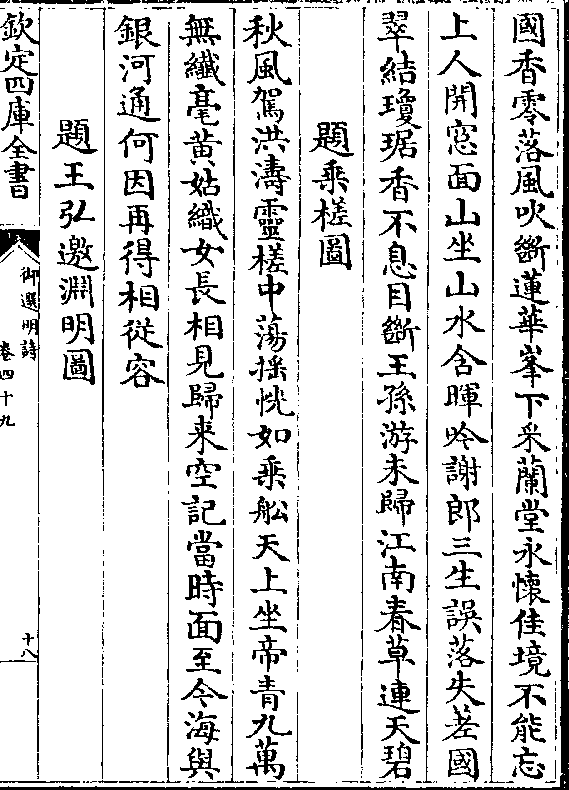 國香零落風吹斷蓮華峯下采蘭堂永懷佳境不能忘
上人開窓面山坐山水含暉吟謝郎三生誤落失荖國
翠結瓊琚香不息目斷王孫游未歸江南春草連天碧
題乗槎圖
秋風駕洪濤靈槎中蕩揺恍如乗舩天上坐帝青九萬
無纖毫黄姑織女長相見歸来空記當時面至今海與
銀河通何因再得相從容
題王弘邀淵明圖
欽定四庫全書
御選明詩
卷四十九
十八